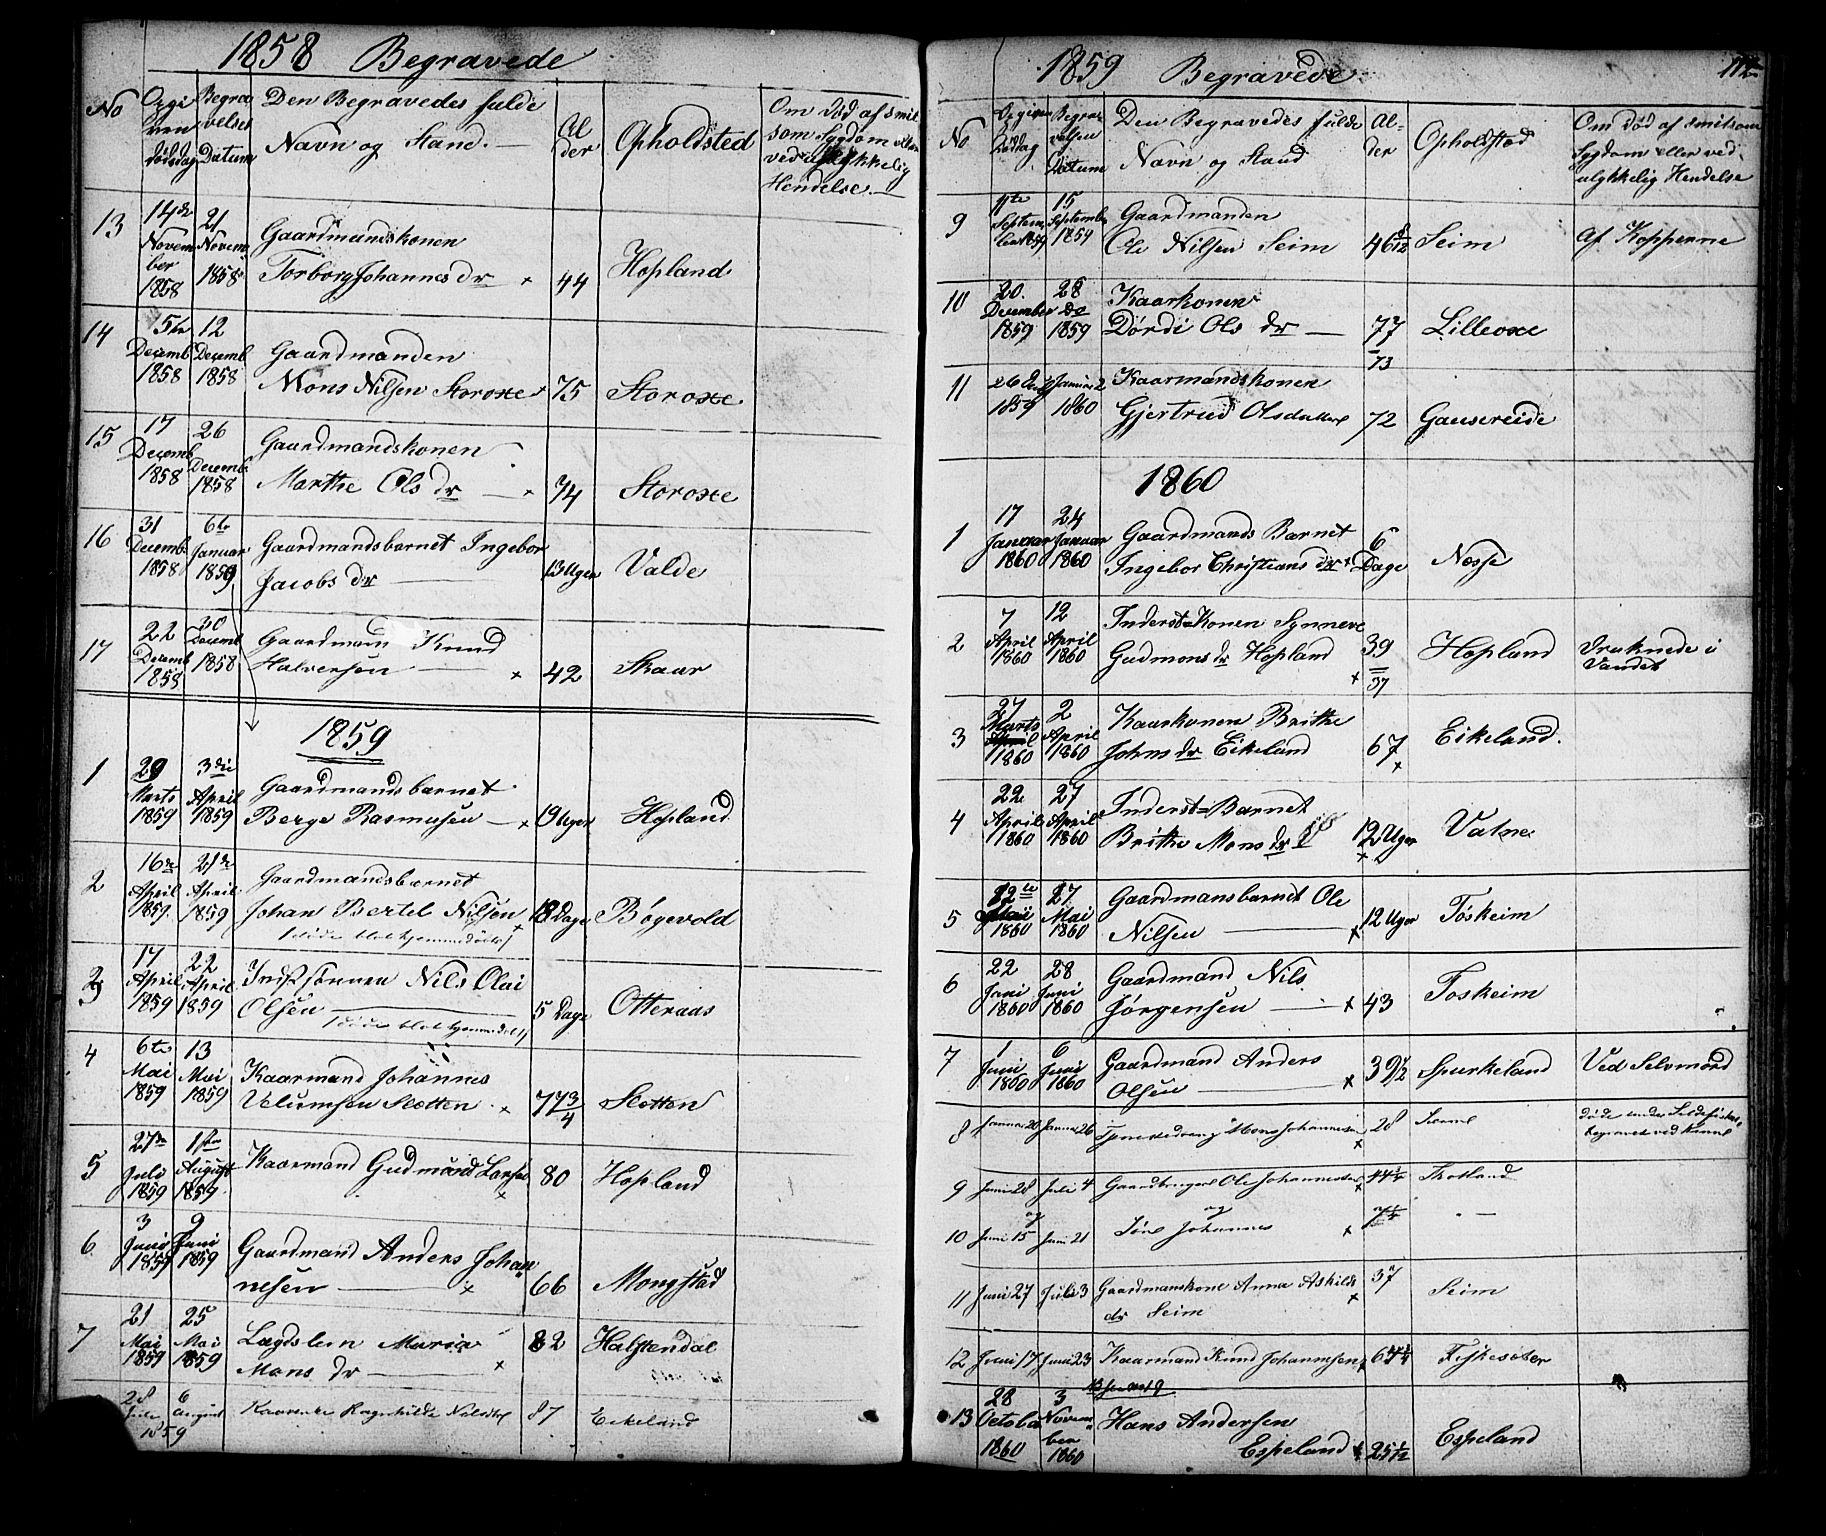 1858 Begravede
No
Opgi
ven
dødsdag
Begra
velses
Datum
Den Begravedes fulde
Navn og Stand.
Al
der
Opholdsted
Om Død af smit
som Sygdom eller
ved ulykkelig
Hendelse
13
14de
Novem
ber
1858
21
Novem
1858
Gaardmandskonen
Torborg Johannes dr
44
Hopland
14
5te
Decemb
1858
12
Decemb
1858
Gaardmanden
Mons Nilsen Storoxe
75
Storoxe
15
17
Decemb
1858
26
Decemb
1858
Gaardmandskonen
Marthe Ols dr
74
Storoxe
16
31
Decemb
1858
6te
Januar
1859
Gaardmandsbarnet Ingebor
Jacobs dr
13 Uger
Valde
17
22
Decemb
1858
30
Decemb
1858
Gaardmand Knud
Halversen
42
Skaar
1859
1
29
Marts
1859
3die
April
1859
Gaardmandsbarnet
Berge Rasmusen
19 Uger
Hopland
2
16de
April
1859
21de
April
1859
Gaardmandsbarnet
Johan Bertel Nilsen
18 Dage
Bøgevold
døde blot hjemmedøbt
3
17
April
1859
22
April
1859
Indstsønnen Nils Olai
Olsen
5 Dage
Otteraas
døde blot hjemmedøbt
4
6te
Mai
1859
13
Mai
1859
Kaarmand Johannes
Velumsen Sletten
77 3/4
Sletten
5
27de
Juli
1859
1ste
August
1859
Kaarmand Gudmund Larsen
80
Hopland
6
3
Juni
1859
9
Juni
1859
Gaardmand Anders Johan
nesen
66
Mongstad
7
21
Mai
1859
25
Mai
1859
Lægdslem Maria
Mons dr
82
Halstendal
28
Juli
1859
6
August
Kaarenke Ragnhilde Nilsdtr
87
Eikeland
1859 Begravede
112
No
Opgiven
Dødsdag
Begra
velsen
Datum
Den Begravedes fulde
Navn og Stand
Al-
der
Opholdstæd
Om Død af smitsom
Sygdom eller ved-
ulykkelig Hendelse
9
11te
Septem
ber 1859
15
Septemb
1859
Gaardmanden
Ole Nilsen Seim
46 8/12
Seim
af Kopperne
10
20
December
1859
28
De
1859
Kaarkonen
Dørdi Ols dr
77
73
Lilleoxe
11
26 De
1859
Januar 2
1860
Kaarmandskonen
Gjertrud Olsdatter
72
Gausereide
1860
1
17
Januar
1860
24
Januar
1860
Gaardmands Barnet
Ingebor Christians dr
6
Dage
Nesse
2
7
April
1860
12
April
1860
Inderst=Konen Synneve
Gudmons dr Hopland
39
37
Hopland
Druknede i
Vandet
3
27
Marts
1860
2
April
1860
Kaarkonen Brithe
Johns dr Eikeland
67
Eikeland.
4
22
April
1860
27
April
1860
Inderst=Barnet
Brithe Mons dr
12 Uger
Vatne
5
22te
Mai
1860
27
Mai
1860
Gaardmansbarnet Ole
Nilsen
12 Uger
Tosheim
6
22
Juni
1860
28
Juni
1860
Gaardmand Nils
Jørgensen
43
Toskeim
7
1
Juni
1860
6
Juni
1860
Gaardmand Anders
Olsen
39 1/2
Spurkeland
Ved Selvmord
8
Januar 20
Januar 26
Tjenestedreng Mons Johannesen
28
døde under Sildefisket,
begravet ved Kinn
9
Juni 28
Juli 4
Ole Johannesen
44 1/4
og
og
10
Juni 15
Juni 21
Johannes
7 1/2
11
Juni 27
Juli 3
Gaardmanskone Anna Askilds
dr Seim
37
Seim
12
Juni 17
Juni 23
Kaarmand Knud Johannesen
67 1/4
Fiskesæter
13
28
October
1860
3
Novem
ber
1860
Hans Andersen
Espeland
25 1/12
Espeland